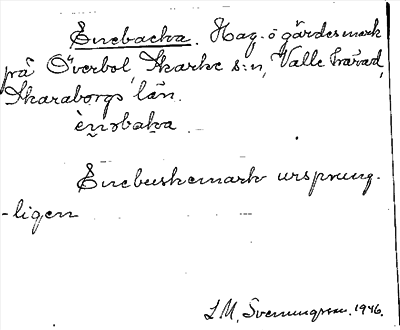 Enebacka. Hag- o gärdesmark
på Överbol, Skarke s:n, Valle härad,
Skaraborgs län.
ènəbaka
Enebuskemark ursprung-
-ligen
S. M. Svenungsson. 1946.